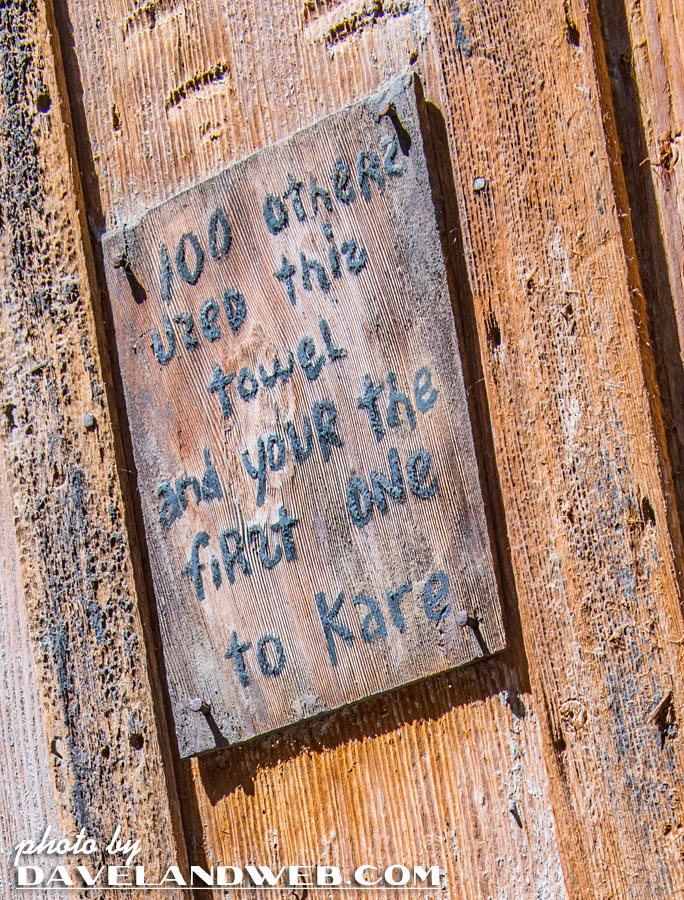 100 otherz
uzed thiz
towel
and YOUR the
fiRzt ONe
to Kare
photo by
DAVELANDWEB.COM